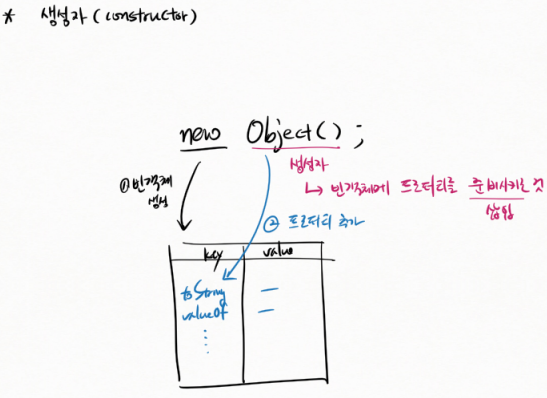 * 생성자 (constructor)
new Object() ;
생성자
① 빈객체
생성
↳ 빈객체에 프로퍼티를 준비시키는 것
삽입
② 프로퍼티 추가
key value
toString —
valueOf —
⋮